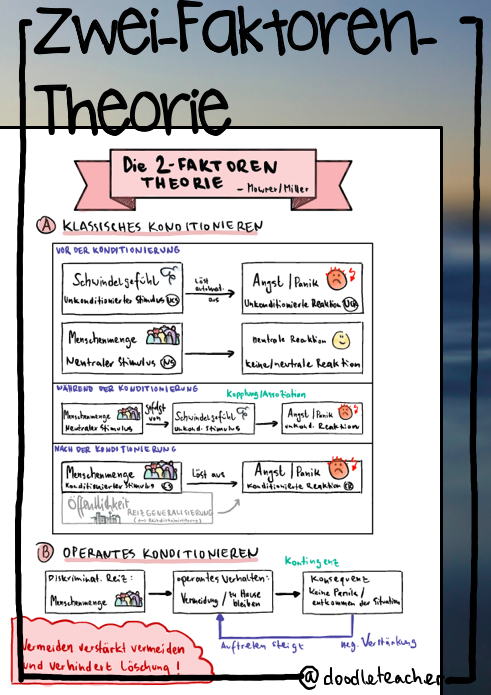 Zwei-Faktoren-
Theorie
Die 2-FAKTOREN
THEORIE - Mowrer/Miller
A KLASSISCHES KONDITIONIEREN
VOR DER KONDITIONIERUNG
Schwindelgefühl
Unkonditionierter Stimulus UCS
löst
automat.
aus
Angst/Panik
Unkonditionierte Reaktion UCR
Menschenmenge
Neutraler Stimulus NS
neutrale Reaktion
keine/neutrale Reaktion
WÄHREND DER KONDITIONIERUNG
Kopplung/Assoziation
Menschenmenge
Neutraler Stimulus
gefolgt
von
Schwindelgefühl
unkond. Stimulus
Angst/Panik
unkond. Reaktion
NACH DER KONDITIONIERUNG
Menschenmenge
Konditionierter Stimulus CS
löst aus
Angst/Panik
Konditionierte Reaktion CR
Öffentlichkeit
REIZGENERALISIERUNG
B OPERANTES KONDITIONIEREN
Kontingenz
Diskriminat. Reiz:
Menschenmenge
operantes Verhalten:
Vermeidung / zu Hause
bleiben
Konsequenz
Keine Panik /
entkommen der Situation
Auftreten steigt
neg. Verstärkung
Vermeiden verstärkt vermeiden
und verhindert Löschung!
@doodleteacher